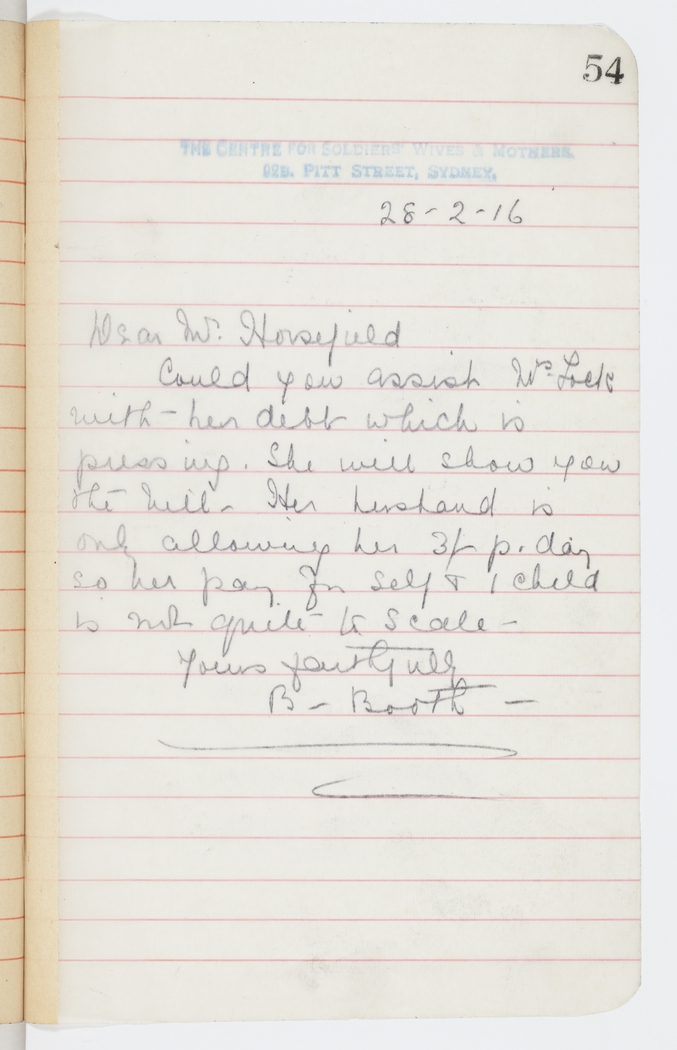 54
THE CENTRE FOR SOLDIERS' WIVES & MOTHERS.
92B. PITT STREET, SYDNEY.
28-2-16
Dear Mr. Horsefield
Could you assist Mrs. Lock
with - her debt which is
pressing. She will show you
the bill - Her husband is
only allowing her 3/- p. day
so her pay for self & 1 child
is not quite to scale -
Yours faithfully
B - Booth -